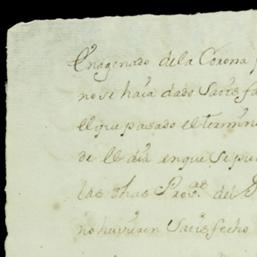 Enagenado de la Corona
no se havia dado Satisfa
el que pasado el termin
de el dia en que se pu
las dhas Prov.as del
no huvieren Satisfecho